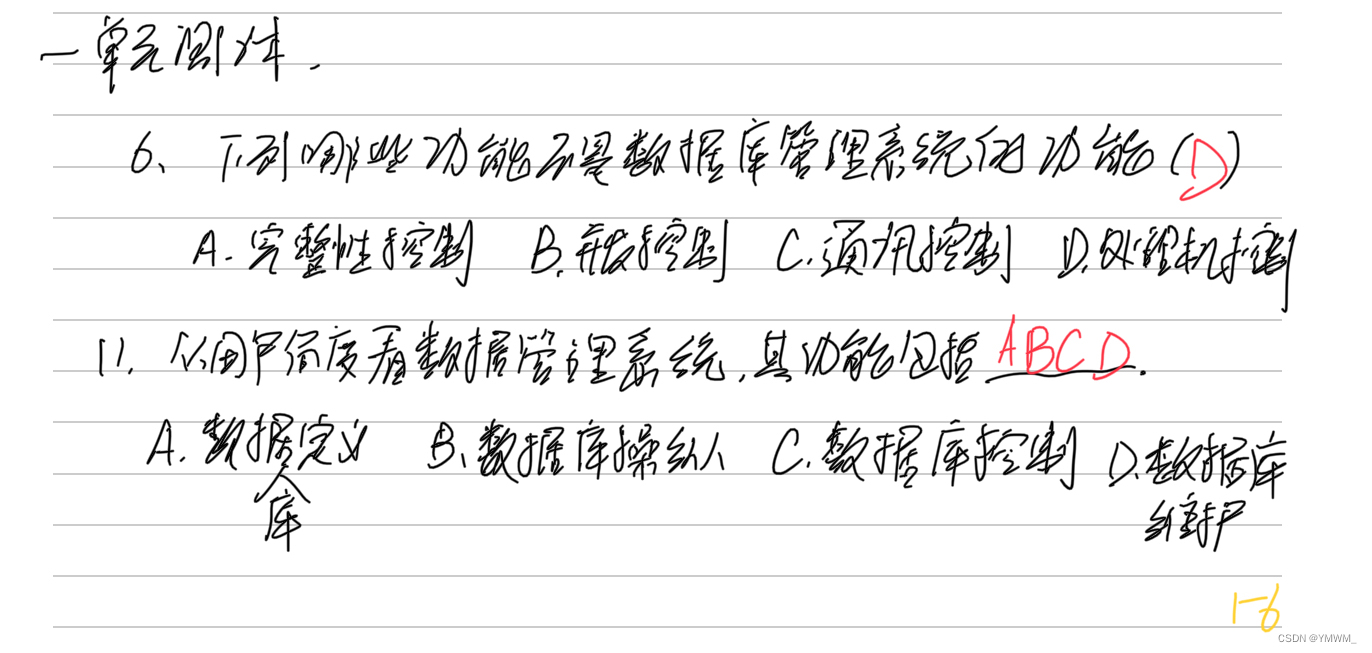 一单元测试.
6、下列哪些功能不是数据库管理系统的功能(D)
A.完整性控制 B.并发控制 C.通讯控制 D.处理机控制
11.从用户角度看数据管理系统,其功能包括ABCD.
A.数据库定义 B、数据库操纵 C.数据库控制 D.数据库
维护
1-6
CSDN @YMWM_